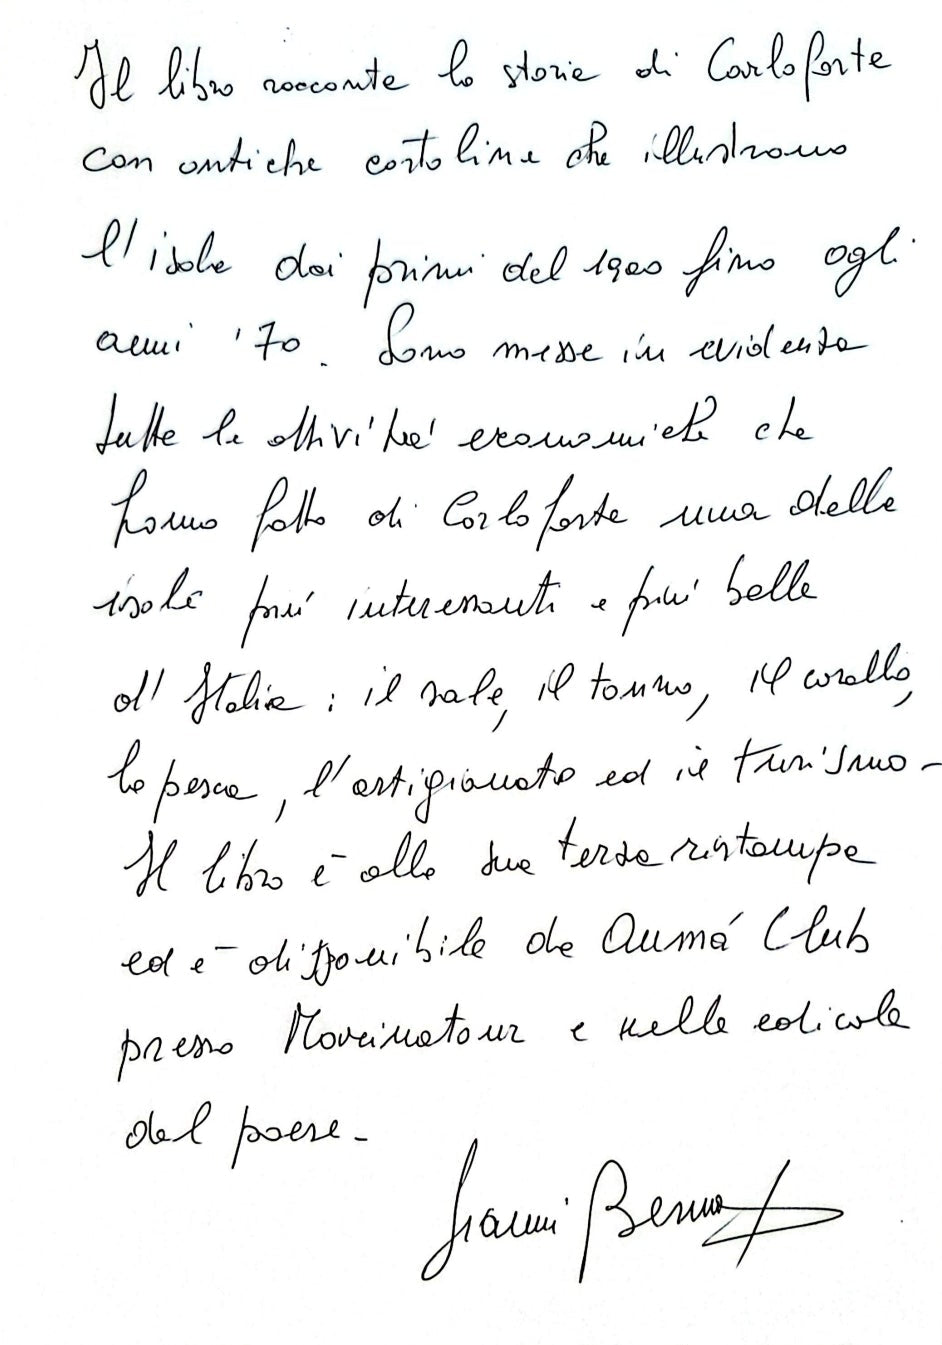 Il libro racconta la storia di Carloforte
con antiche cartoline che illustrano
l'isola dai primi del 1900 fino agli
anni '70. Sono messe in evidenza
tutte le attività economiche che
hanno fatto di Carloforte una delle
isole più interessanti e più belle
d'Italia: il sale, il tonno, il corallo,
la pesca, l'artigianato ed il turismo -
Il libro è alla sua terza ristampa
ed è disponibile da Aumá Club
presso Marinatour e nelle edicole
del paese -
Gianni